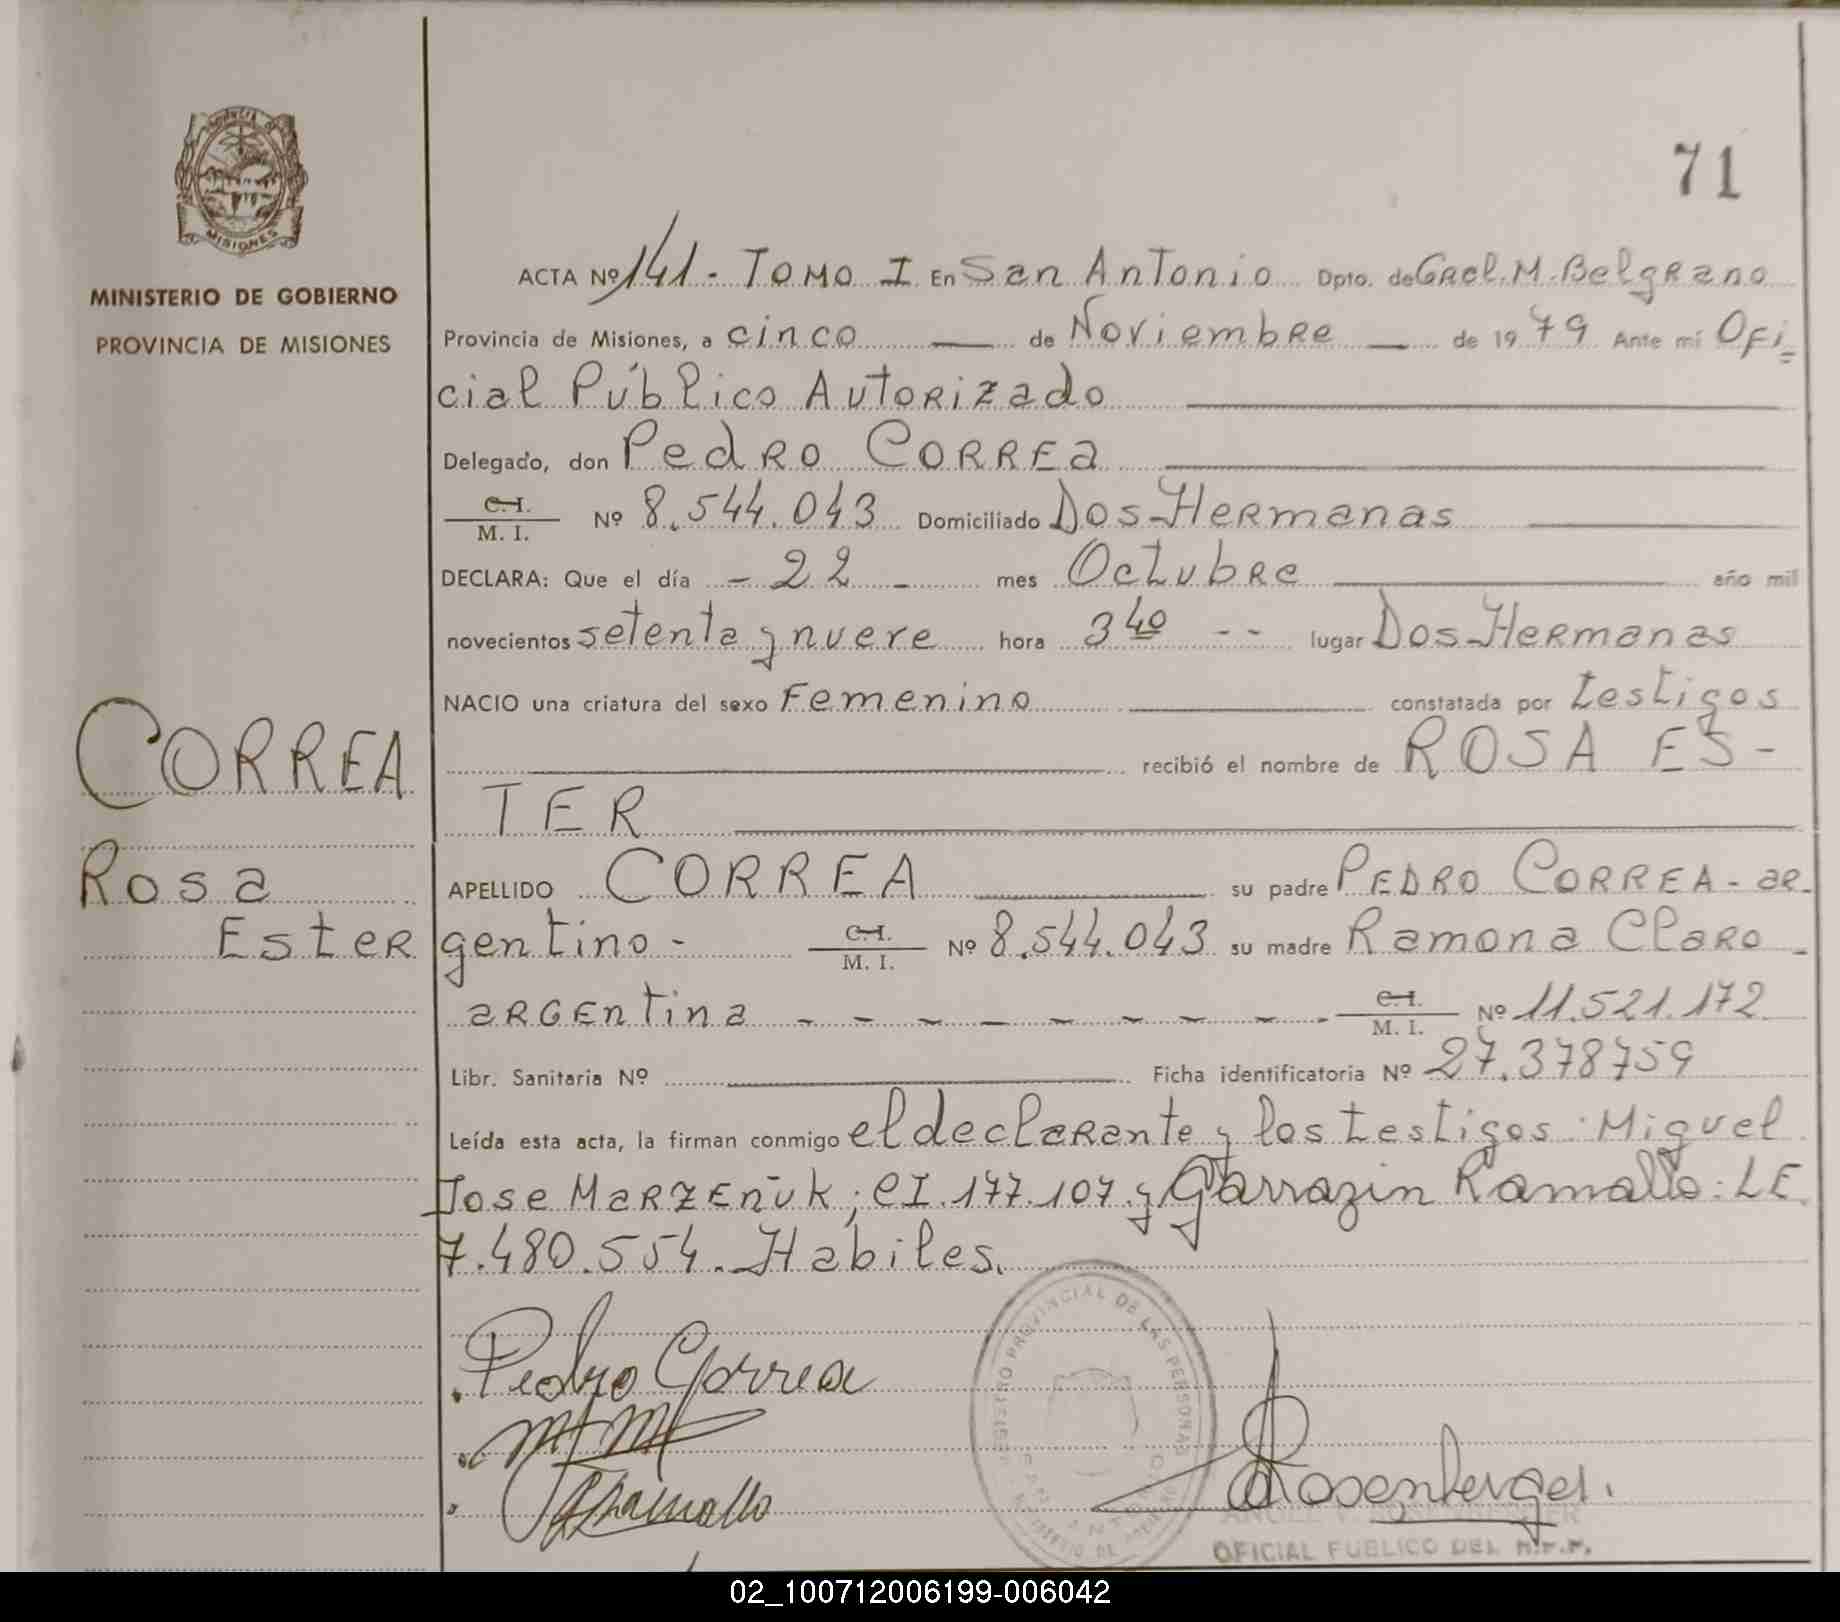 71
PROVINCIA DE
MISIONES
MINISTERIO DE GOBIERNO
PROVINCIA DE MISIONES
ACTA Nº 141 - TOMO I En San Antonio Dpto. de Gral. M. Belgrano
Provincia de Misiones, a cinco de Noviembre de 1979 Ante mí Ofi
cial Público Autorizado
Delegado, don Pedro Correa
C. I.
M. I. Nº 8.544.043 Domiciliado Dos Hermanas
DECLARA: Que el día - 22 - mes Octubre año mil
novecientos setenta y nueve hora 3 40 - - lugar Dos Hermanas
NACIO una criatura del sexo Femenino constatada por testigos
recibió el nombre de ROSA ES-
TER
CORREA
Rosa
Ester
APELLIDO CORREA su padre Pedro Correa - ar-
gentino - C. I. M. I. Nº 8.544.043 su madre Ramona Claro -
argentina - - - - - - - - C. I. M. I. Nº 11.521.172
Libr. Sanitaria Nº Ficha identificatoria Nº 27.378759
Leída esta acta, la firman conmigo el declarante y los testigos: Miguel
Jose Marzeñuk; CI. 177.107. y Garrazin Ramallo: LE
7.480.554. Habiles.
Pedro Correa
Ramallo
Rosenberger.
REGISTRO PROVINCIAL DE LAS PERSONAS
OFICIAL PUBLICO DEL R.P.P.
02_100712006199-006042